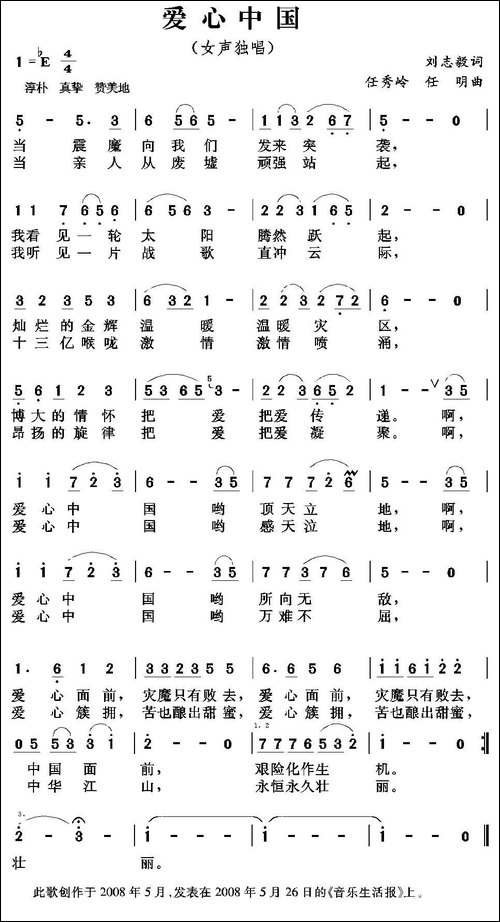 爱心中国
（女声独唱）
1=♭E 4/4
刘志毅词
淳朴 真挚 赞美地
任秀岭 任 明曲
5 - 5. 3 | 6 565 - | 1 1 2 3 2 67 | 5 - - 0 |
当 震魔 向我们 发来突 袭，
当 亲人 从废墟 顽强站 起，
1 1 7 656 | 6 56 3 - | 2 2 3 1 65 | 2 - - 0 |
我看见一轮 太 阳 腾然跃 起，
我听见一片 战 歌 直冲云 际，
3 2 35 3 | 6 32 1 - | 2 2 3 2 72 | 6 - - 0 |
灿烂的金辉 温 暖 温暖灾 区，
十三亿喉咙 激 情 激情喷 涌，
5 61 2 3 | 53 365 5 | 2 2 3 652 | 1 - - ∨ 35 |
博大的情怀 把 爱 把爱传 递。啊，
昂扬的旋律 把 爱 把爱凝 聚。啊，
1 1 7 2 3 | 5 - - 35 | 7 7 7 2 6 | 6 - - 35 |
爱心中 国 哟 顶天立 地，啊，
爱心中 国 哟 感天泣 地，啊，
1 1 7 2 3 | 6 - - 35 | 7 7 3 7 6 | 5 - - 0 |
爱心中 国 哟 所向无 敌，
爱心中 国 哟 万难不 屈，
1. 6 1 2 | 332355 | 6. 6 5 3 | 116122 |
爱心面前，灾魔只有败去，爱心面前，灾魔只有败去，
爱心簇拥，苦也酿出甜蜜，爱心簇拥，苦也酿出甜蜜，
05 53 3 1 | 2 - - 0 | 1.2. 7776532 | 1 - - 0 :‖
中国面 前， 艰险化作生 机。
中华江 山， 永恒永久壮 丽。
3. 2 - 3 - | 1 - - - | 1 - - - | 1 - - 0 ‖
壮 丽。
此歌创作于2008年5月，发表在2008年5月26日的《音乐生活报》上。